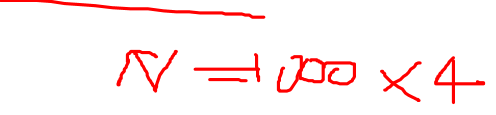 N = 1000 × 4